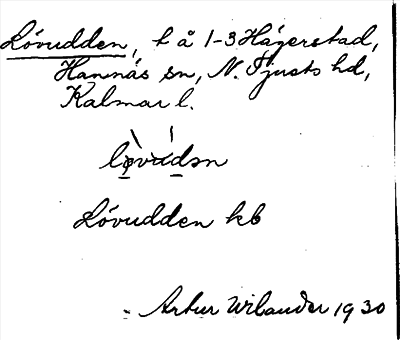 Lövudden, t å 1-3 Hägerstad,
Hannäs sn, N. Tjusts hd,
Kalmar l.
løvudən
Lövudden kb
Artur Wilander 1930